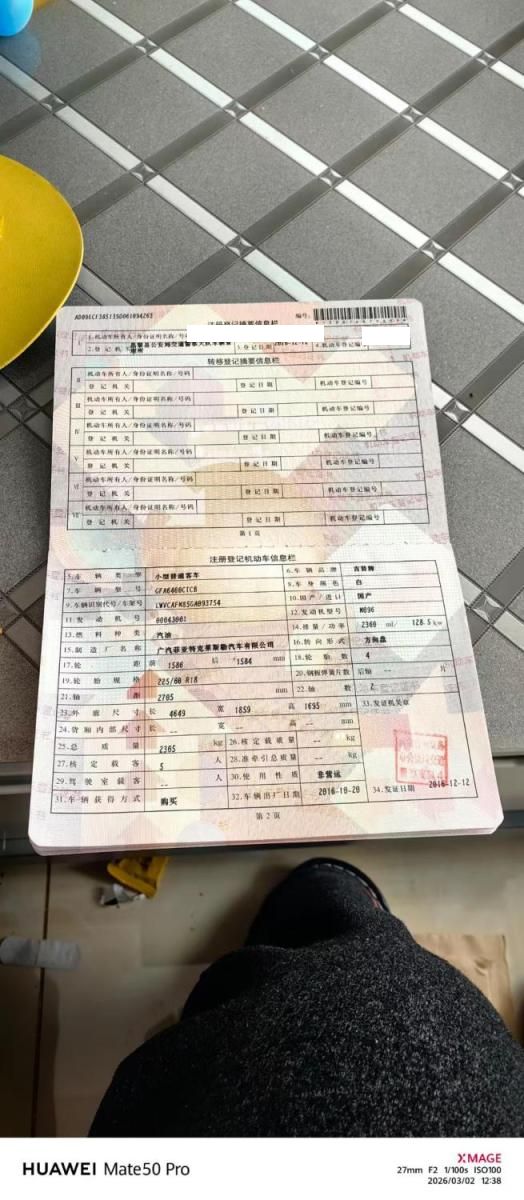 注册登记摘要信息栏
编号:
1.机动车所有人/身份证明名称/号码
2.登记机关 3.登记日期 4.机动车登记编号
转移登记摘要信息栏
II 机动车所有人/身份证明名称/号码
登记机关 登记日期 机动车登记编号
III 机动车所有人/身份证明名称/号码
登记机关 登记日期 机动车登记编号
IV 机动车所有人/身份证明名称/号码
登记机关 登记日期 机动车登记编号
V 机动车所有人/身份证明名称/号码
登记机关 登记日期 机动车登记编号
VI 机动车所有人/身份证明名称/号码
登记机关 登记日期 机动车登记编号
VII 机动车所有人/身份证明名称/号码
登记机关 登记日期 机动车登记编号
第1页
注册登记机动车信息栏
5.车辆类型 小型普通客车 6.车辆品牌 吉普牌
7.车辆型号 GFA6460CTCB 8.车身颜色 白
9.车辆识别代号/车架号 10.国产/进口 国产
11.发动机号 12.发动机型号
13.燃料种类 汽油 14.排量/功率 2360 ml/ 128.5 kw
15.制造厂名称 广汽菲亚特克莱斯勒汽车有限公司 16.转向形式 方向盘
17.轮距 前 1586 后 1584 mm 18.轮胎数 4
19.轮胎规格 225/60 R18 20.钢板弹簧片数 后轴 -- 片
21.轴距 2705 mm 22.轴数 2
23.外廓尺寸 长 4649 宽 1859 高 1695 mm 33.发证机关章
24.货厢内部尺寸 长 -- 宽 -- 高 -- mm
25.总质量 2365 kg 26.核定载质量 -- kg
27.核定载客 5 人 28.准牵引总质量 -- kg
29.驾驶室载客 -- 人 30.使用性质 非营运
31.车辆获得方式 购买 32.车辆出厂日期 2016-10-20 34.发证日期 2016-12-12
第2页
HUAWEI Mate50 Pro
XMAGE
27mm F2 1/100s ISO100
2026/03/02 12:38